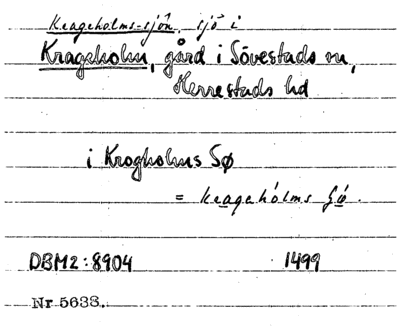 Krageholms-sjön, sjö i
Krageholm, gård i Sövestads sn,
Herrestads hd
i Krogholms Sø
= krageholms sjö.
DBM2:8904 1499
Nr 5633.